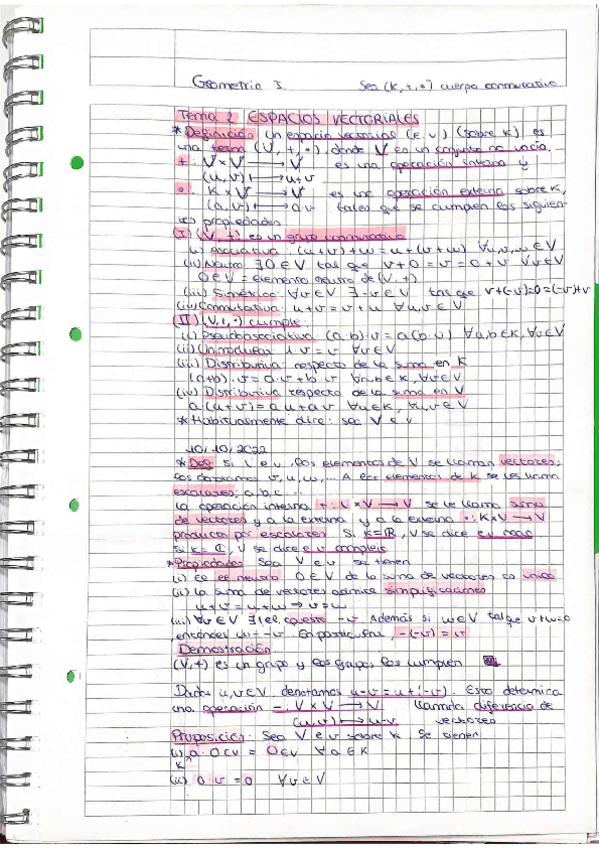 Geometría I Sea (K,+,∘) cuerpo conmutativo
Tema 2 ESPACIOS VECTORIALES
* Definición Un espacio vectorial (e.v) (sobre K) es
una terna (V, +, ·) donde V es un conjunto no vacío,
+: V×V ⟶ V es una operación interna y
(u, v) ⟼ u+v
∘: K×V ⟶ V es una operación externa sobre K,
(a, v) ⟼ av tales que se cumplen los siguien-
tes propiedades
(I) (V, +) es un grupo conmutativo
(i) Asociativa (u+v)+w = u+(v+w) ∀u,v,w ∈ V
(ii) Neutro ∃ 0 ∈ V tal que v+0 = v = 0+v ∀v ∈ V
0 ∈ V = elemento neutro de (V, +)
(iii) Simétrico ∀v ∈ V ∃ -v ∈ V tal que v+(-v)=0=(-v)+v
(iv) Conmutativa u+v = v+u ∀u,v ∈ V
(II) (V,+,·) cumple
(i) Pseudoasociativa (a·b)·v = a(b·v) ∀a,b∈K, ∀v∈V
(ii) Unimodular 1·v = v ∀v∈V
(iii) Distributiva respecto de la suma en K
(a+b)·v = a·v + b·v ∀a,b∈K, ∀v∈V
(iv) Distributiva respecto de la suma en V
a(u+v) = au + av ∀a∈K, ∀u,v∈V
* Habitualmente dice: sea V e.v
10/10/2022
* Def Si V e.v, los elementos de V se llaman vectores,
los denotamos v, u, w, ... A los elementos de K se les llama
escalares, a, b, c ...
La operación interna +: V×V ⟶ V se le llama suma
de vectores y a la externa y a la externa ∘: K×V ⟶ V
producto por escalares. Si K=ℝ, V se dice e.v real
Si K=ℂ, V se dice e.v complejo
* Propiedades Sea V e.v se tienen
(i) El el neutro 0∈V de la suma de vectores es único
(ii) La suma de vectores admite simplificaciones
u+v = u+w ⇒ v=w
(iii) ∀v∈V ∃! el opuesto -v. Además si w∈V tal que v+w=0
, entonces w=-v. En particular, -(-v) = v
Demostración
(V,+) es un grupo y los grupos los cumplen
Dados u,v∈V denotamos u-v = u+(-v). Esto determina
una operación -: V×V ⟶ V llamada diferencia de
(u,v) ⟼ u-v vectores
Proposición: Sea V e.v sobre K Se tienen
(i) a·0∈V = 0∈V ∀a∈K
K
(ii) 0·v = 0 ∀v∈V